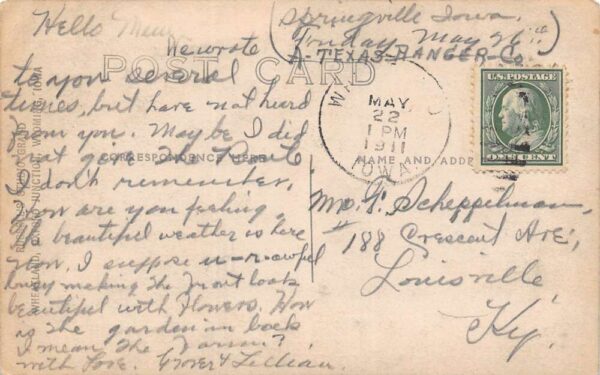 Springville Iowa.
Hello
Friday May 26th
A-TEXAS-RANGER-Co.
POST CARD
We wrote
to you several
times, but have not heard
from you. Maybe I did
not give The Route
I don't remember,
How are you feeling,
The beautiful weather is here
now. I suppose u-r-awful
busy making The Front look
beautiful with Flowers, How
is The garden in back
I mean The Farm?
with Love. Grover & Lillian.
CORRESPONDENCE HERE
NAME AND ADD
WYOMING, IOWA
MAY
22
1 PM
1911
IOWA
U.S. POSTAGE
ONE CENT
Mr. F. Scheppelman,
# 188 Crescent Ave,
Louisville
Ky.